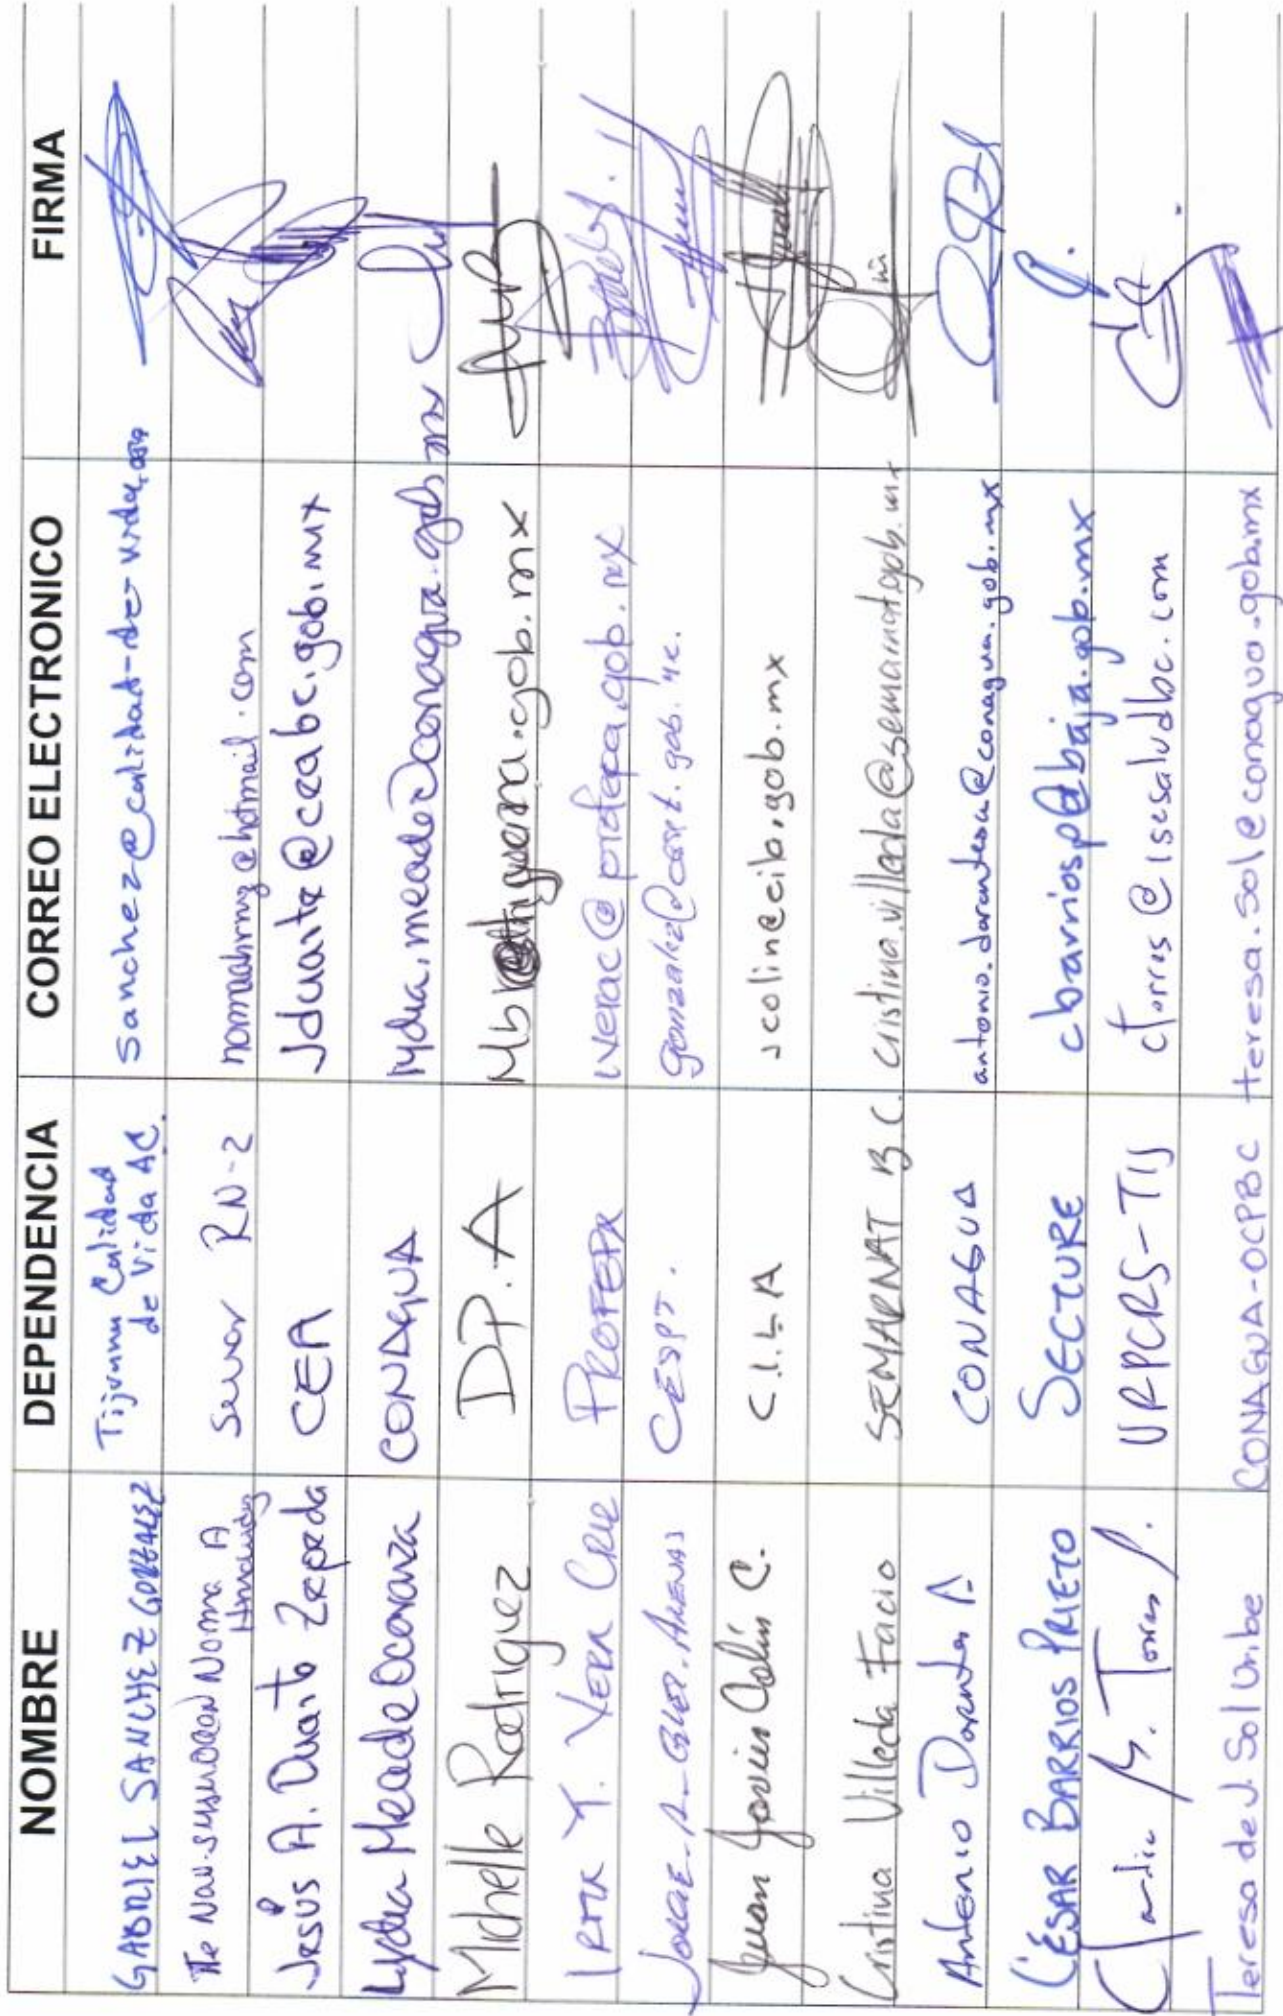 NOMBRE DEPENDENCIA CORREO ELECTRONICO FIRMA
GABRIEL SANCHEZ GONZALEZ Tijuana Calidad de Vida A.C. sanchez@calidad-de-vida.org
Tte Nav. Norma A RN-2 normaahrnz@hotmail.com
Jesús A. Duarte Zepeda CEA jduarte@ceabc.gob.mx
Lydia Meade Ocaranza CONAGUA lydia.meade@conagua.gob.mx
Michelle Rodriguez D.P.A gob.mx
Irma Y. Vera Cruz PROFEPA iverac@profepa.gob.mx
JORGE A. GLEZ. ARENAS CESPT.
Juan Javier Colín C. C.I.L.A jcolin@cilb.gob.mx
Cristina Villeda Facio SEMARNAT B.C. cristina.villeda@semarnat.gob.mx
Antonio Dorantes A CONAGUA antonio.dorantesa@conagua.gob.mx
CÉSAR BARRIOS PRIETO SECTURE cbarriosp@baja.gob.mx
Claudia M. Torres P. URPCRS-TIJ ctorres@isesaludbc.com
Teresa de J. Sol Uribe CONAGUA-OCPBC teresa.sol@conagua.gob.mx